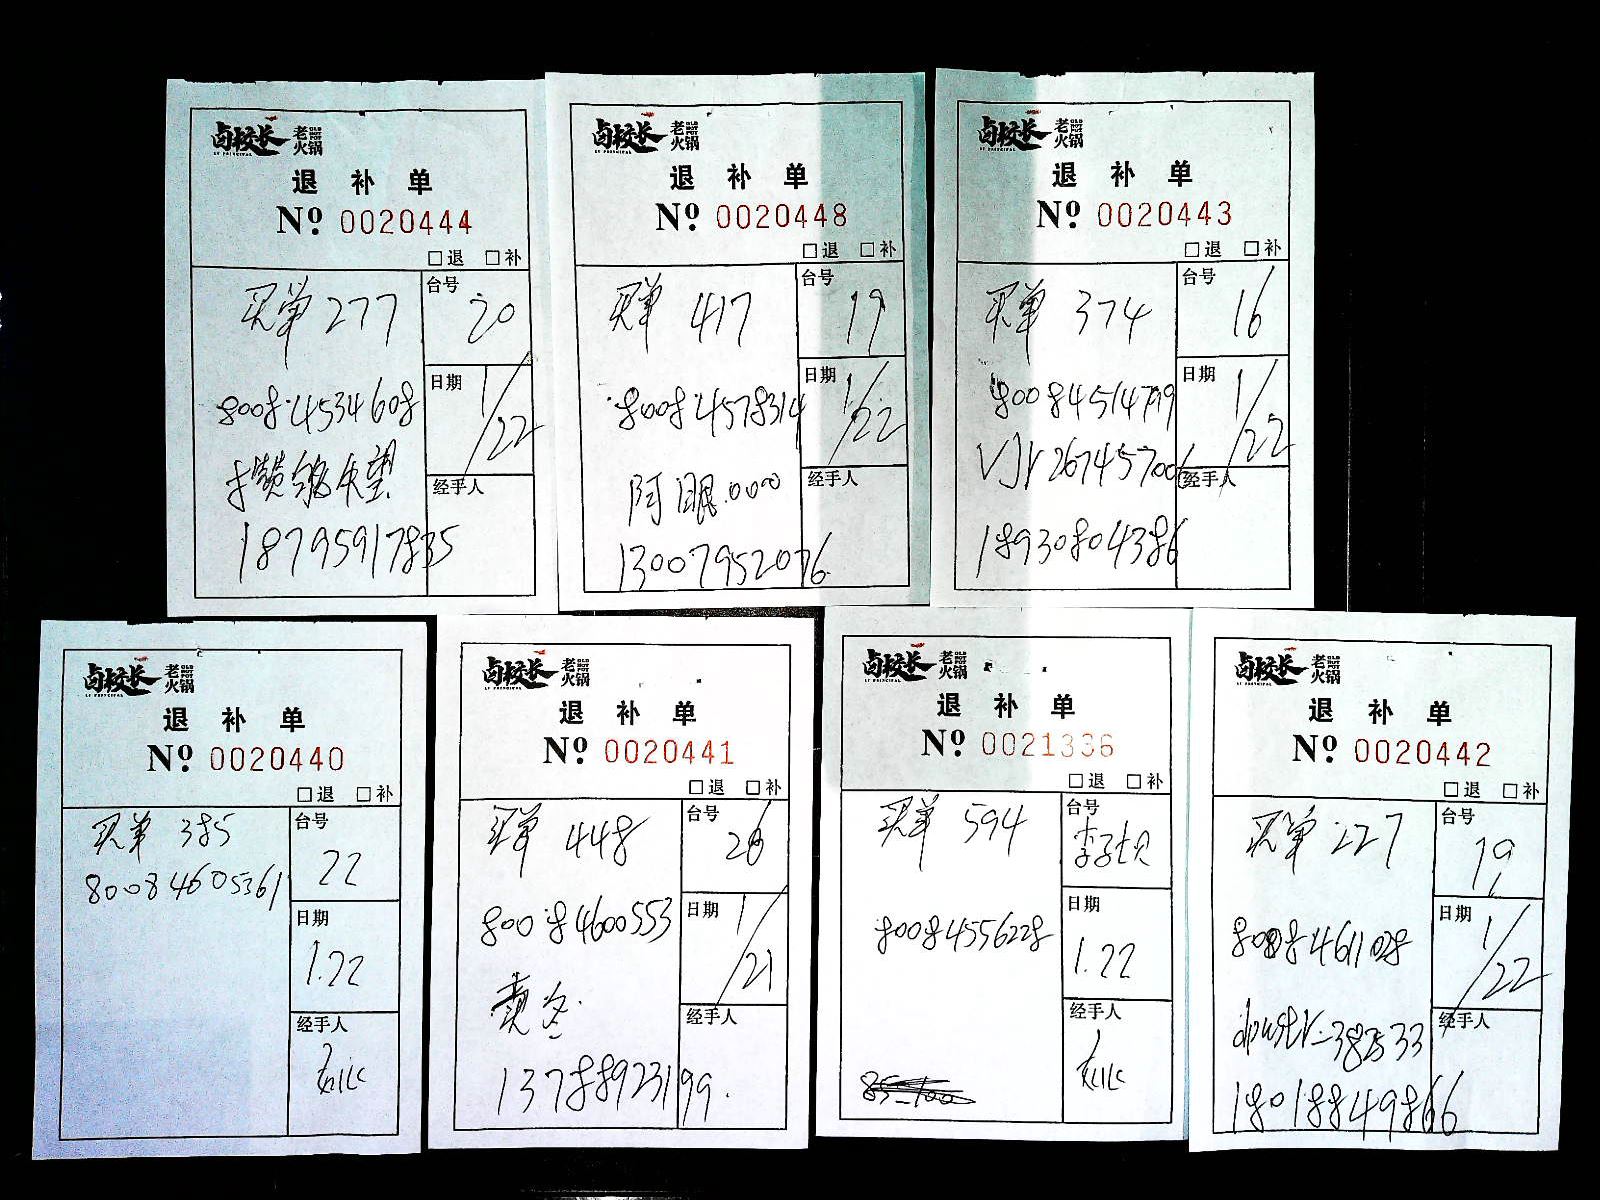 卤校长 老火锅 OLD HOT POT
LY PRINCIPAL
退 补 单
Nº 0020444
□退 □补
买单 277
台号
20
8008.4534608
日期
1/22
失望
经手人
18795917835
卤校长 老火锅
退 补 单
Nº 0020448
□退 □补
买单 417
台号
19
8008.4578314
日期
1/22
阿眼.0000
经手人
13007952076
卤校长 老火锅
退 补 单
Nº 0020443
□退 □补
买单 374
台号
16
80084514799
日期
1/22
267457006
经手人
18930804386
卤校长 老火锅 OLD HOT POT
LY PRINCIPAL
退 补 单
Nº 0020440
□退 □补
买单 385
台号
22
80084605361
日期
1.22
经手人
卤校长 老火锅 OLD HOT POT
LY PRINCIPAL
退 补 单
Nº 0020441
□退 □补
买单 448
台号
26
80084600553
日期
1/21
经手人
13788923199.
卤校长 老火锅 OLD HOT POT
LY PRINCIPAL
退 补 单
Nº 0021336
□退 □补
买单 594
台号
李子坝
80084556228
日期
1.22
经手人
卤校长 老火锅 OLD HOT POT
LY PRINCIPAL
退 补 单
Nº 0020442
□退 □补
买单 227
台号
19
80084611028
日期
1/22
经手人
18018849866